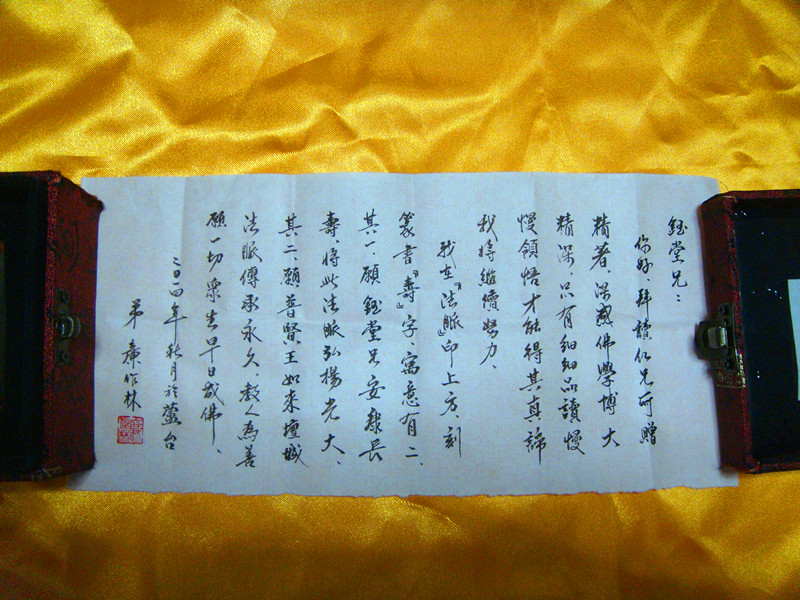 钰堂兄：
你好、拜讀仁兄所贈
精著、深感佛學博大
精深、只有细细品讀慢
慢領悟才能得其真諦
我将繼續努力、
我在『法脈』印上方、刻
篆書『壽』字、寓意有二、
其一、願鈺堂兄安康長
壽、将此法脈弘揚光大、
其二、願普賢王如来壇城
法脈傳承永久、教人為善
願一切衆生早日成佛、
二〇一四年秋月於蓥台
弟 作林